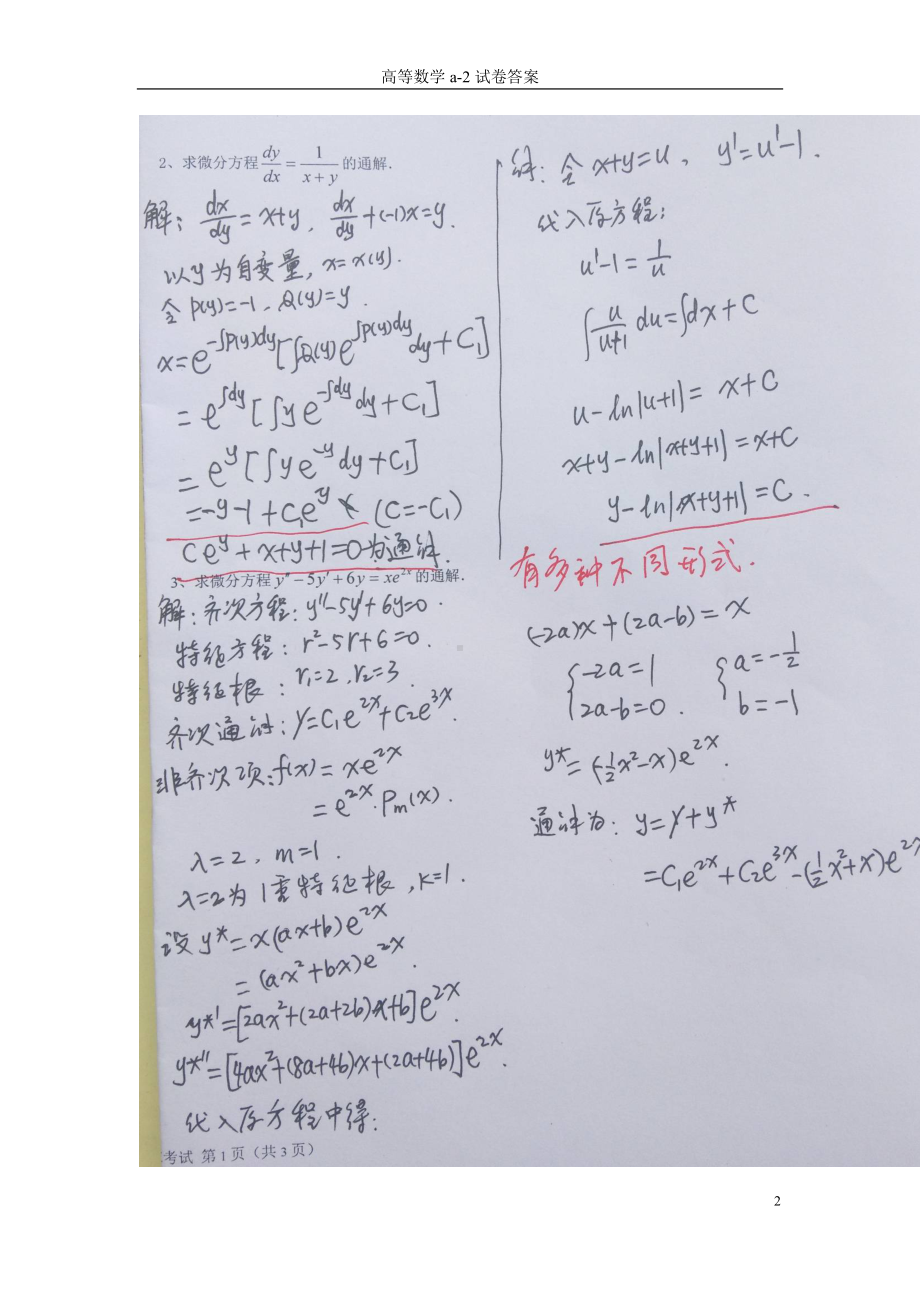 高等数学 a-2 试卷答案
2、求微分方程 dy/dx = 1/(x+y) 的通解.
解: dx/dy = x+y, dx/dy +(-1)x=y.
以y为自变量, x=x(y).
令 P(y)=-1, Q(y)=y.
x=e^{-∫P(y)dy}[∫Q(y)e^{∫P(y)dy}dy+C₁]
=e^{∫dy}[∫ye^{-∫dy}dy+C₁]
=e^y[∫ye^{-y}dy+C₁]
=-y-1+C₁e^y (C=-C₁)
Ce^y+x+y+1=0为通解.
解: 令 x+y=u, y'=u'-1.
代入原方程:
u'-1=1/u
∫u/(u+1) du=∫dx+C
u-ln|u+1|=x+C
x+y-ln|x+y+1|=x+C
y-ln|x+y+1|=C.
有多种不同形式.
3、求微分方程 y″-5y′+6y=xe^{2x} 的通解.
解: 齐次方程: y''-5y'+6y=0.
特征方程: r²-5r+6=0.
特征根: r₁=2, r₂=3.
齐次通解: Y=C₁e^{2x}+C₂e^{3x}.
非齐次项: f(x)=xe^{2x}
=e^{2x}·Pm(x).
λ=2, m=1.
λ=2为1重特征根, k=1.
设 y*=x(ax+b)e^{2x}
=(ax²+bx)e^{2x}.
y*'=[2ax²+(2a+2b)x+b]e^{2x}.
y*''=[4ax²+(8a+4b)x+(2a+4b)]e^{2x}.
代入原方程中得:
(-2a)x+(2a-b)=x
{-2a=1 {a=-1/2
{2a-b=0. {b=-1
y*=(-1/2x²-x)e^{2x}.
通解为: y=Y+y*
=C₁e^{2x}+C₂e^{3x}-(1/2x²+x)e^{2x}
考试 第 1 页（共 3 页）
2